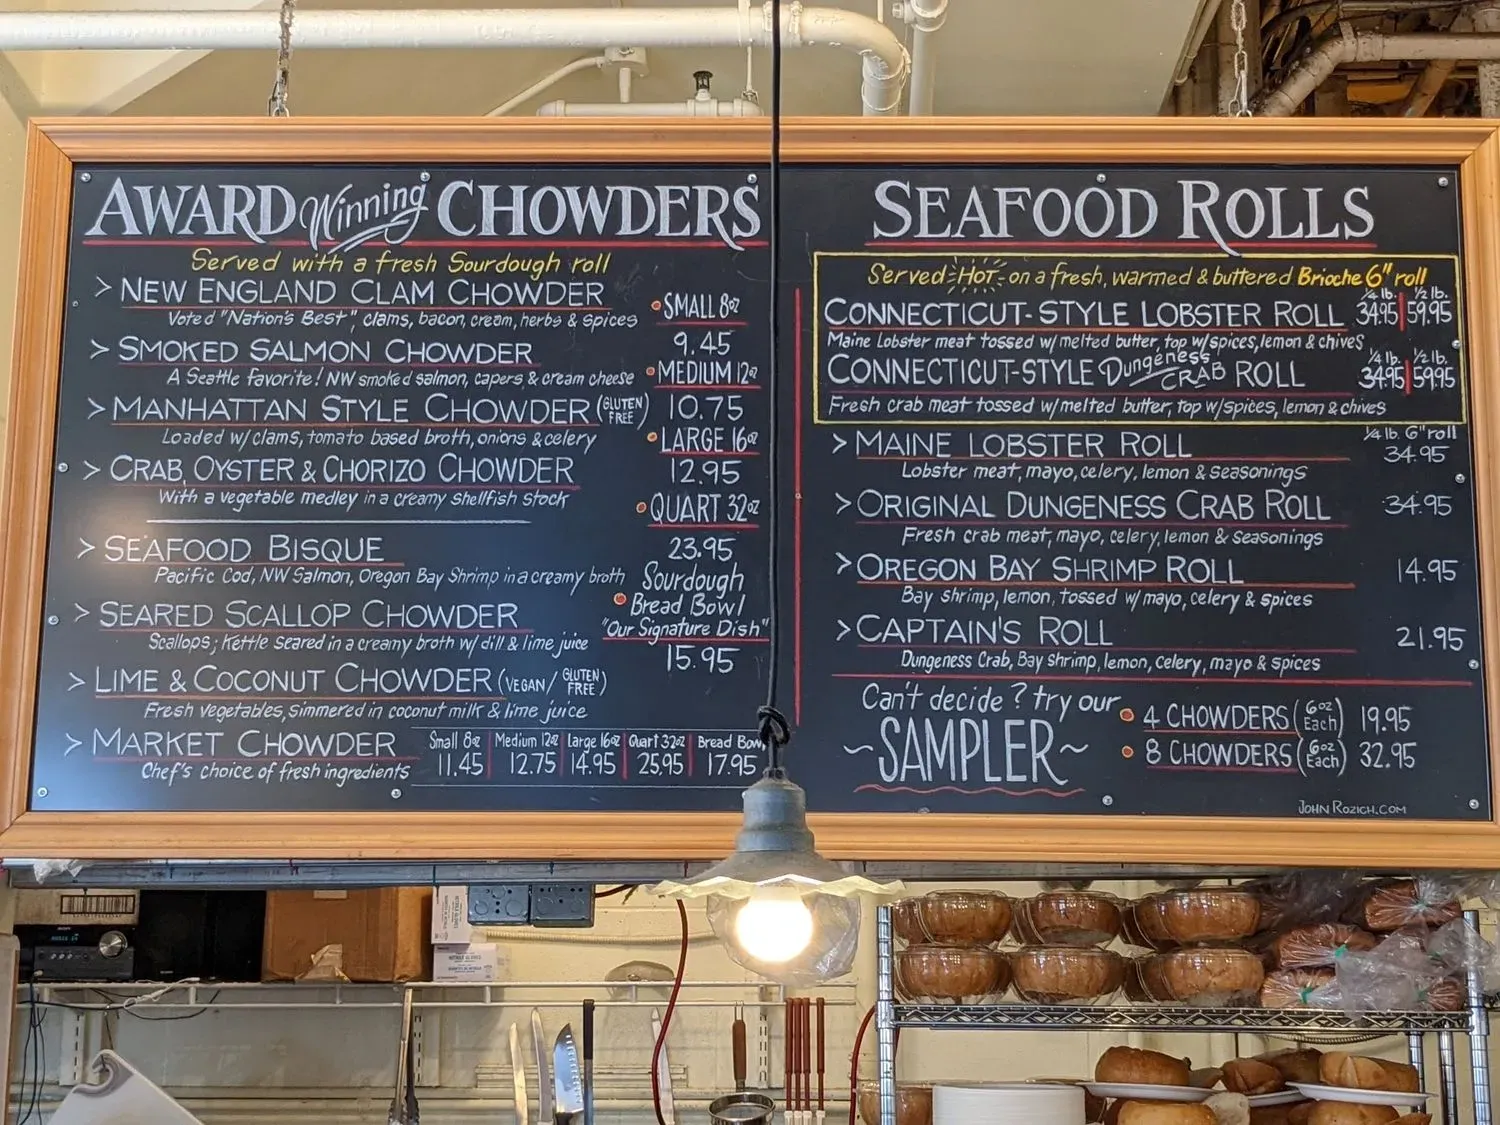 AWARD Winning CHOWDERS
Served with a fresh Sourdough roll
> NEW ENGLAND CLAM CHOWDER
Voted "Nation's Best", clams, bacon, cream, herbs & spices
> SMOKED SALMON CHOWDER
A Seattle favorite! NW smoked salmon, capers & cream cheese
> MANHATTAN STYLE CHOWDER (GLUTEN FREE)
Loaded w/clams, tomato based broth, onions & celery
> CRAB, OYSTER & CHORIZO CHOWDER
With a vegetable medley in a creamy shellfish stock
> SEAFOOD BISQUE
Pacific Cod, NW Salmon, Oregon Bay Shrimp in a creamy broth
> SEARED SCALLOP CHOWDER
Scallops; Kettle seared in a creamy broth w/ dill & lime juice
> LIME & COCONUT CHOWDER (VEGAN/ GLUTEN FREE)
Fresh vegetables, simmered in coconut milk & lime juice
> MARKET CHOWDER
Chef's choice of fresh ingredients
SMALL 8oz
9.45
MEDIUM 12oz
10.75
LARGE 16oz
12.95
QUART 32oz
23.95
Sourdough
Bread Bowl
"Our Signature Dish"
15.95
Small 8oz Medium 12oz Large 16oz Quart 32oz Bread Bowl
11.45 12.75 14.95 25.95 17.95
SEAFOOD ROLLS
Served HOT on a fresh, warmed & buttered Brioche 6" roll
1/4 lb. 1/2 lb.
CONNECTICUT-STYLE LOBSTER ROLL 34.95 59.95
Maine Lobster meat tossed w/melted butter, top w/spices, lemon & chives
1/4 lb. 1/2 lb.
CONNECTICUT-STYLE Dungeness CRAB ROLL 34.95 59.95
Fresh crab meat tossed w/melted butter, top w/spices, lemon & chives
1/4 lb. 6" roll
> MAINE LOBSTER ROLL 34.95
Lobster meat, mayo, celery, lemon & seasonings
> ORIGINAL DUNGENESS CRAB ROLL 34.95
Fresh crab meat, mayo, celery, lemon & seasonings
> OREGON BAY SHRIMP ROLL 14.95
Bay shrimp, lemon, tossed w/mayo, celery & spices
> CAPTAIN'S ROLL 21.95
Dungeness Crab, Bay shrimp, lemon, celery, mayo & spices
Can't decide? try our
~SAMPLER~
4 CHOWDERS (6oz Each) 19.95
8 CHOWDERS (6oz Each) 32.95
JOHN ROZICH.COM